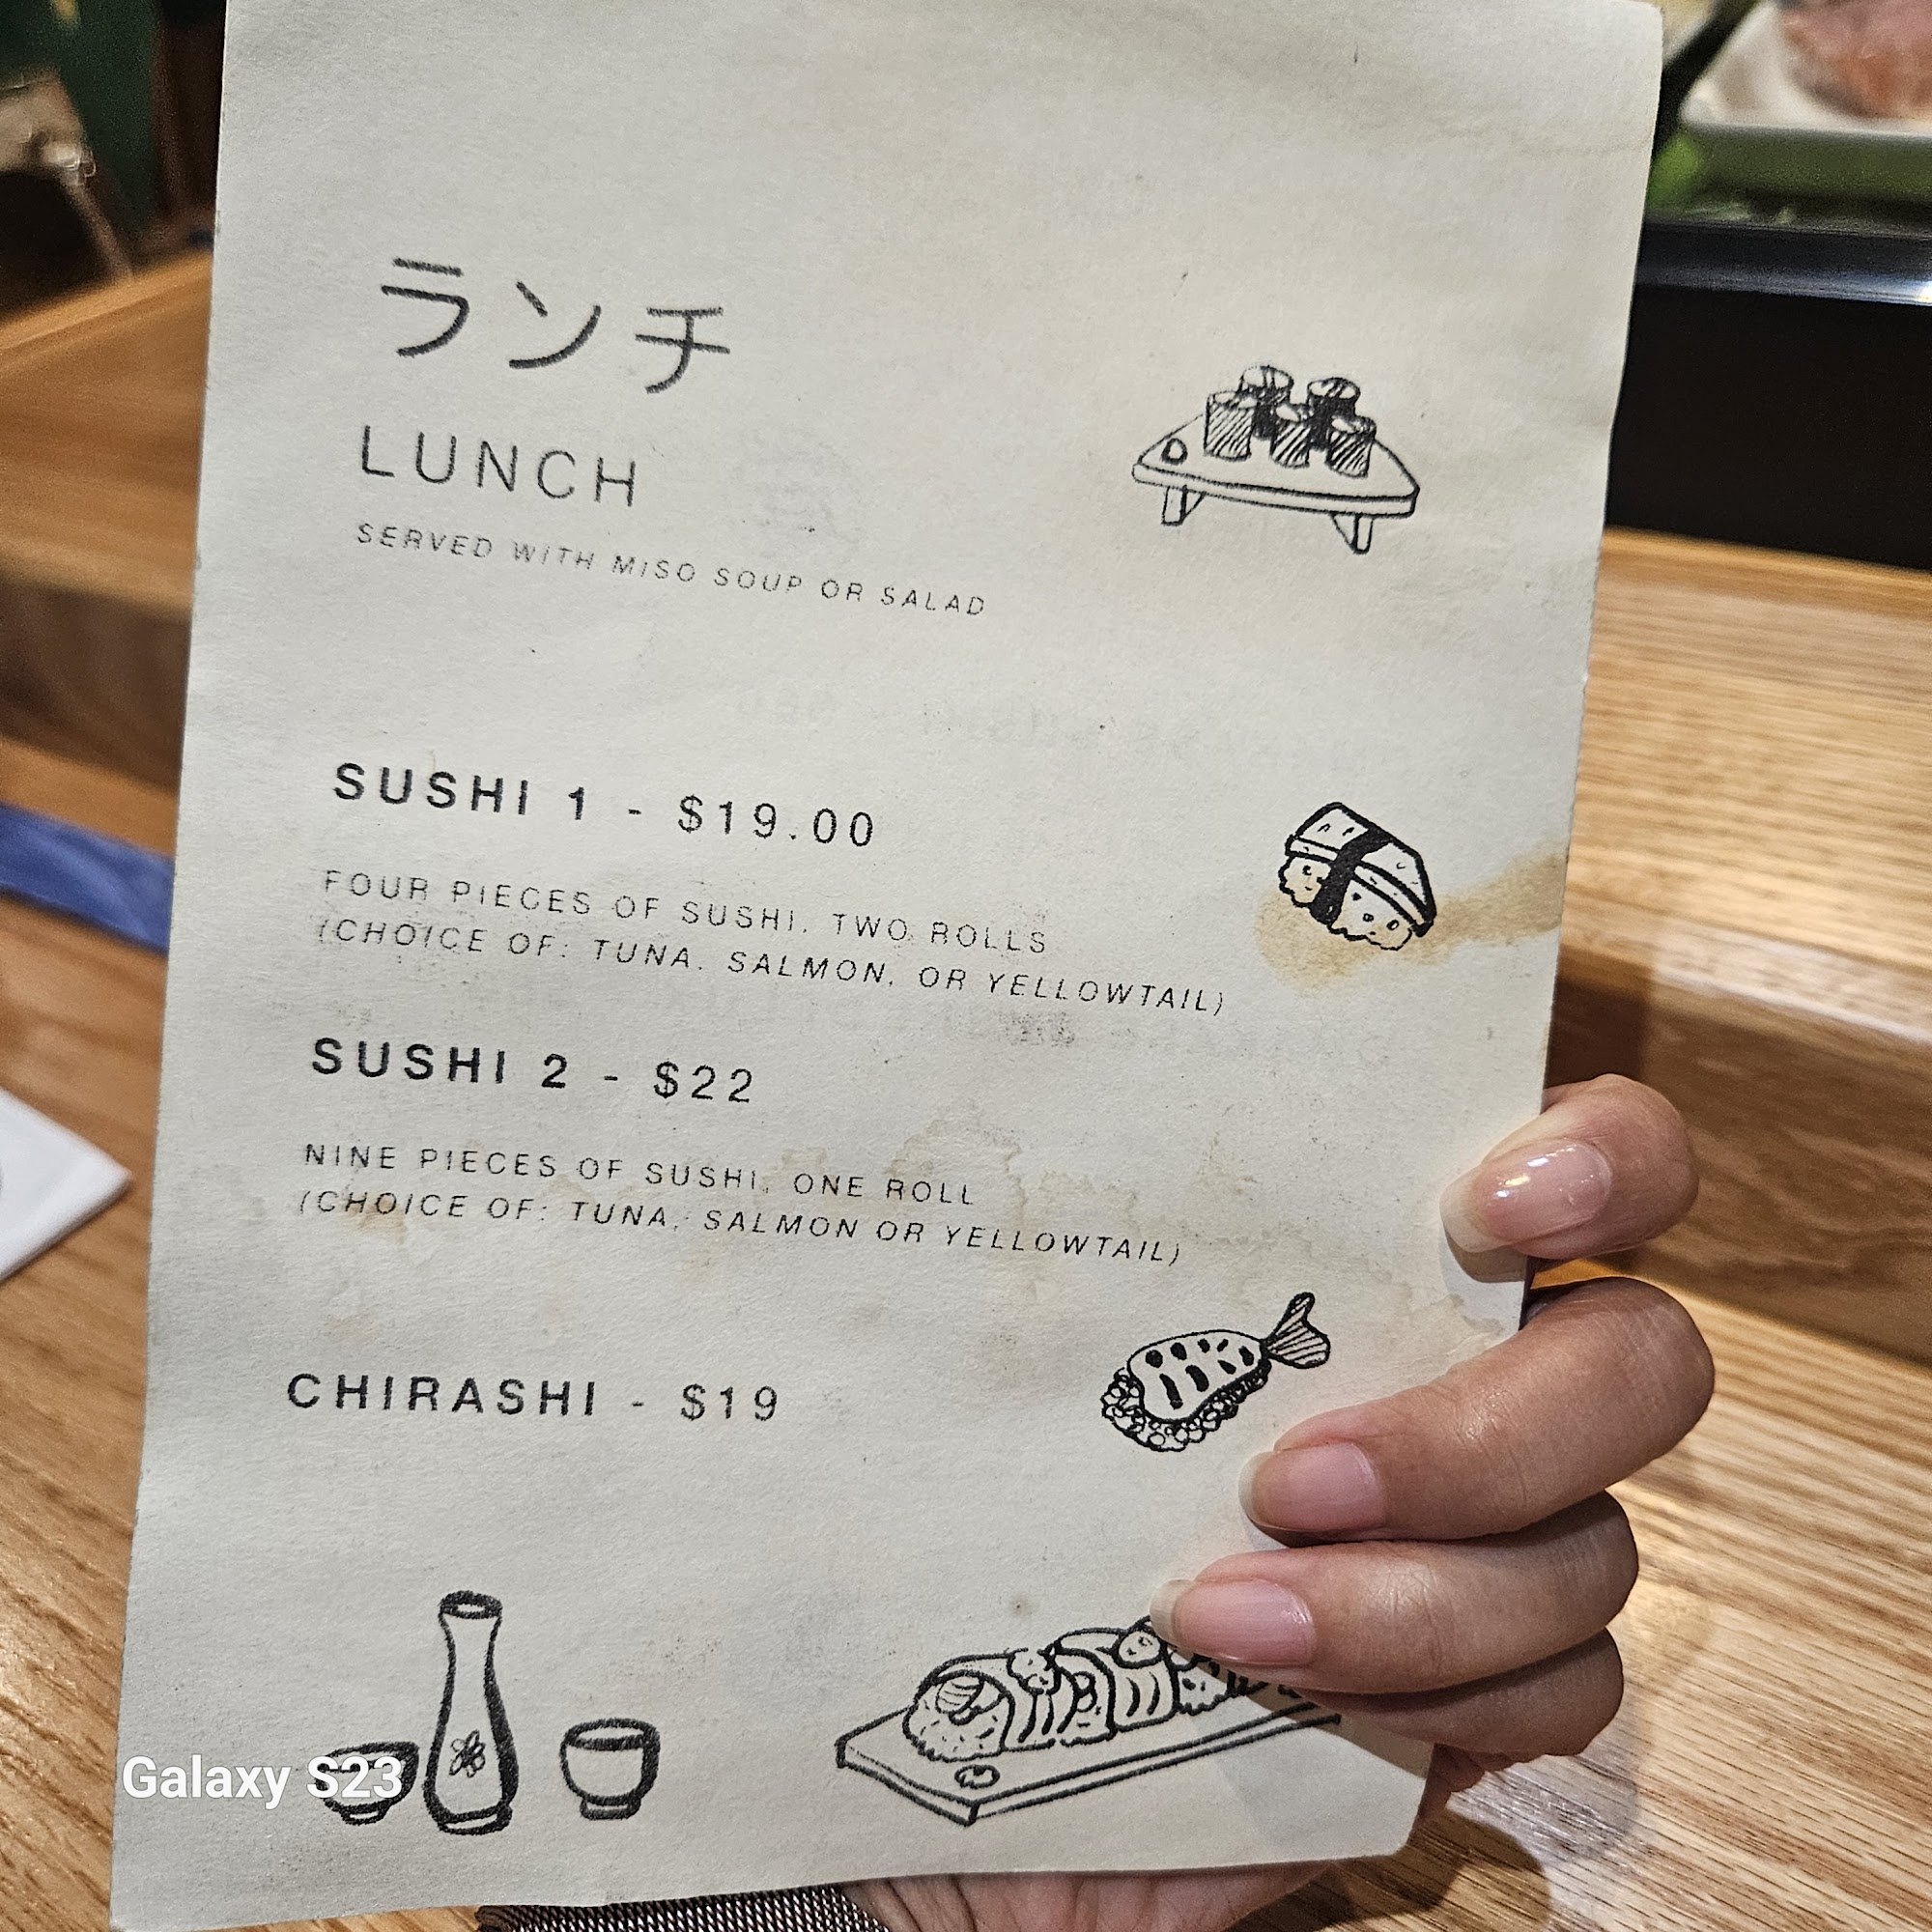 ランチ
LUNCH
SERVED WITH MISO SOUP OR SALAD
SUSHI 1 - $19.00
FOUR PIECES OF SUSHI, TWO ROLLS
(CHOICE OF: TUNA, SALMON, OR YELLOWTAIL)
SUSHI 2 - $22
NINE PIECES OF SUSHI, ONE ROLL
(CHOICE OF: TUNA, SALMON OR YELLOWTAIL)
CHIRASHI - $19
Galaxy S23